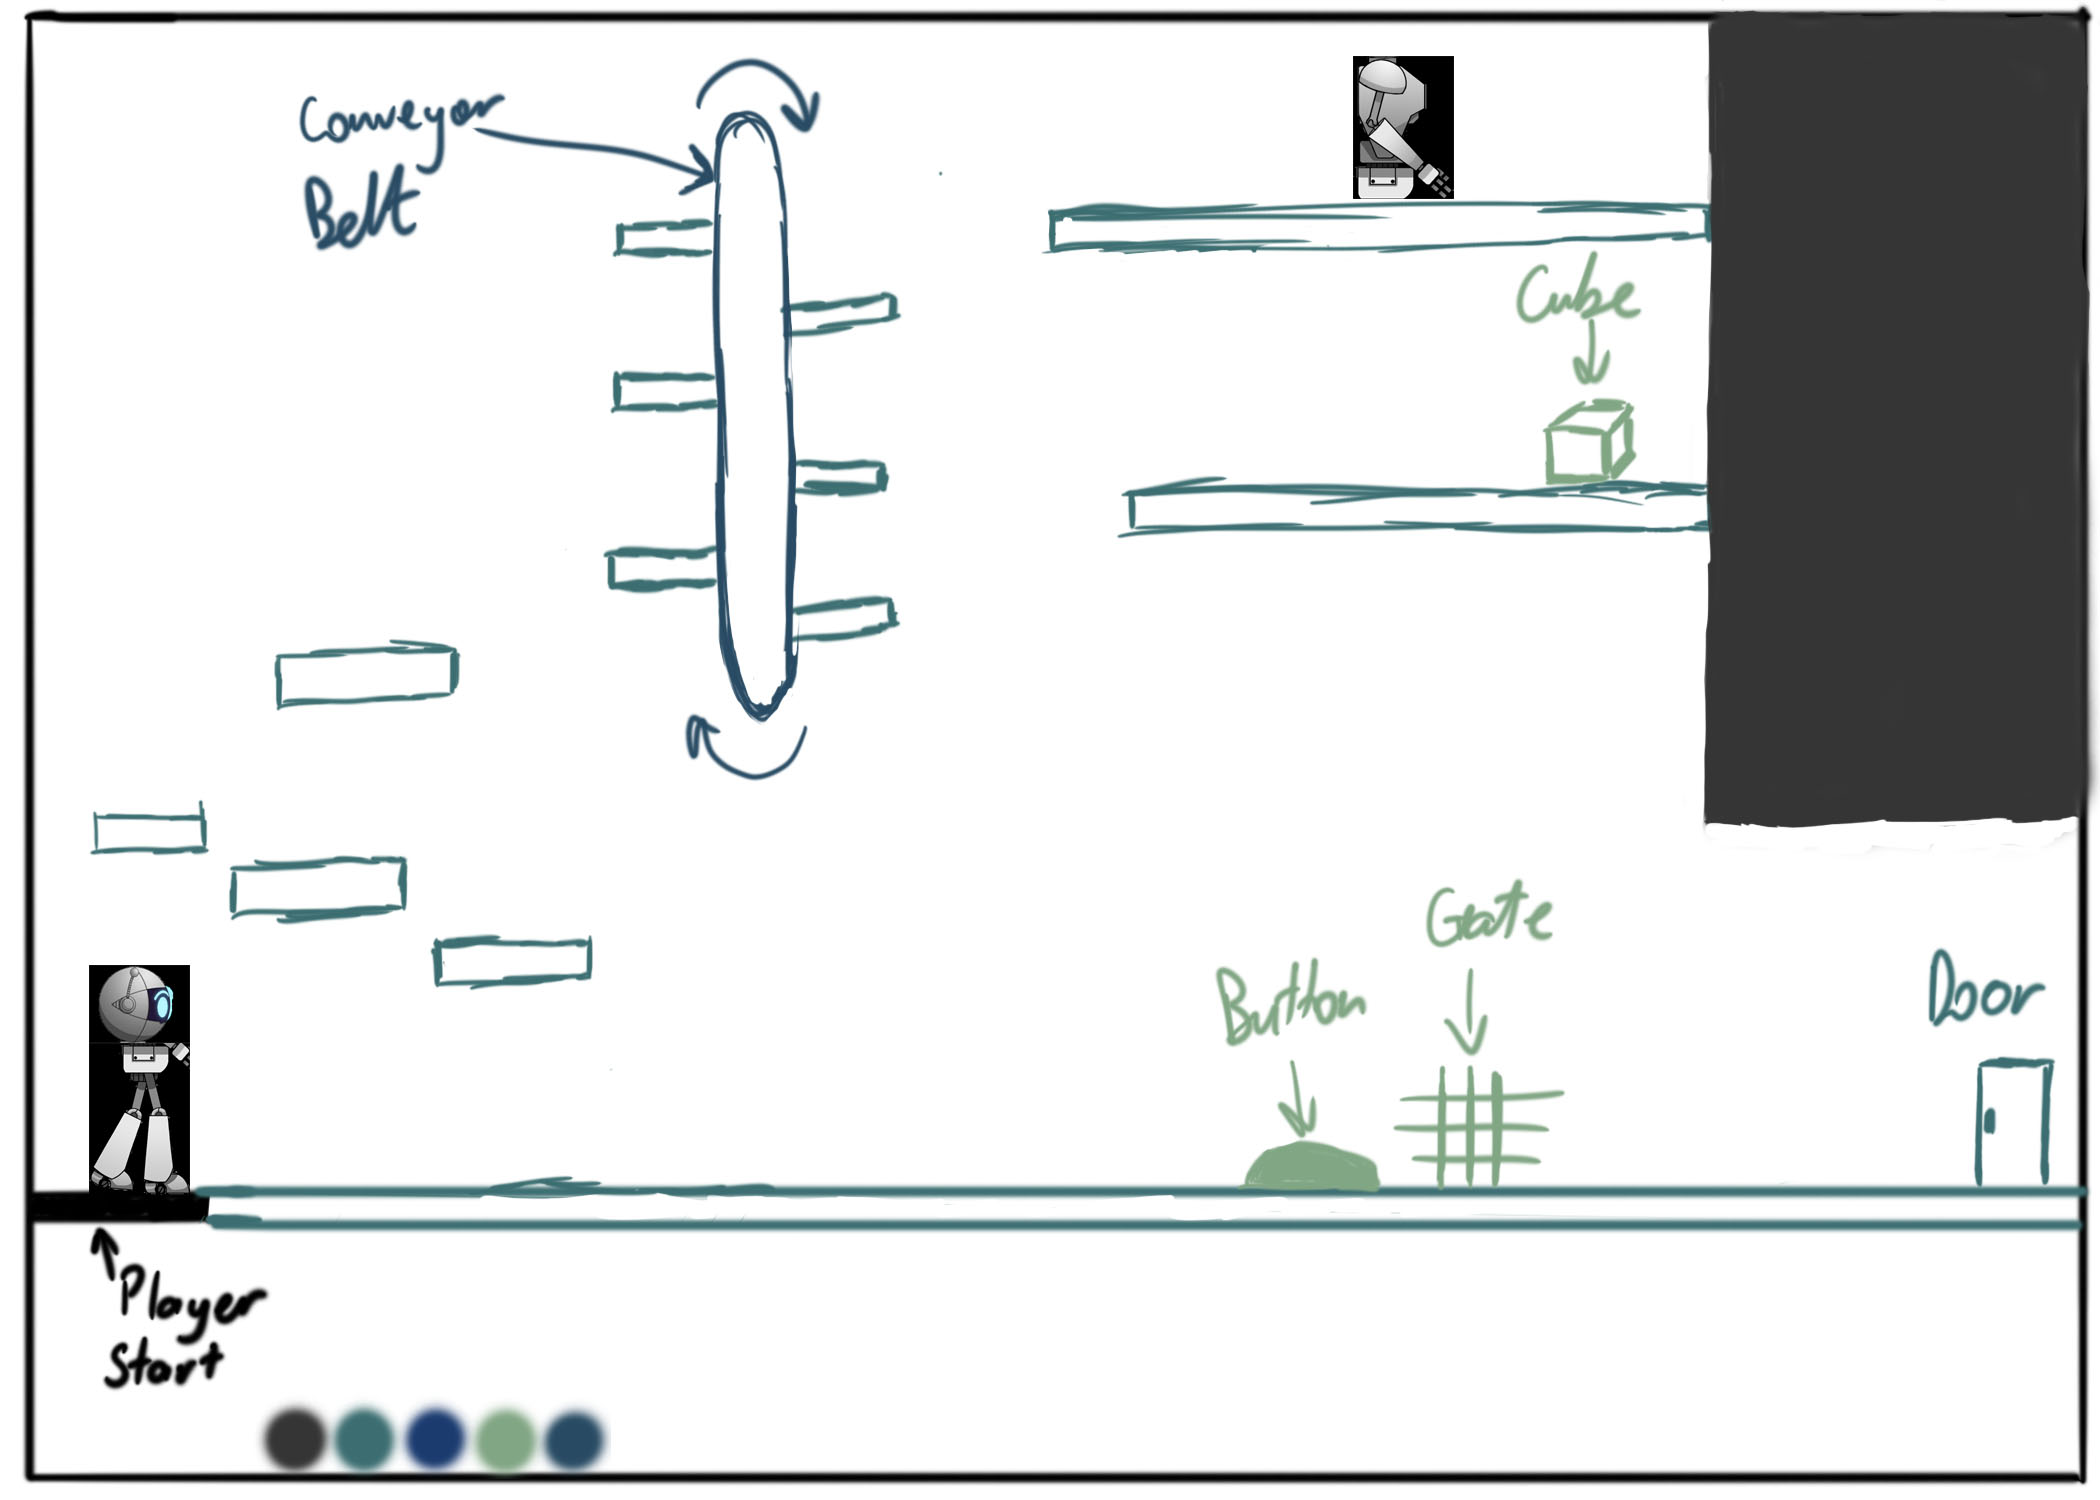 Conveyor
Belt
Cube
Gate
Button
Door
Player
Start